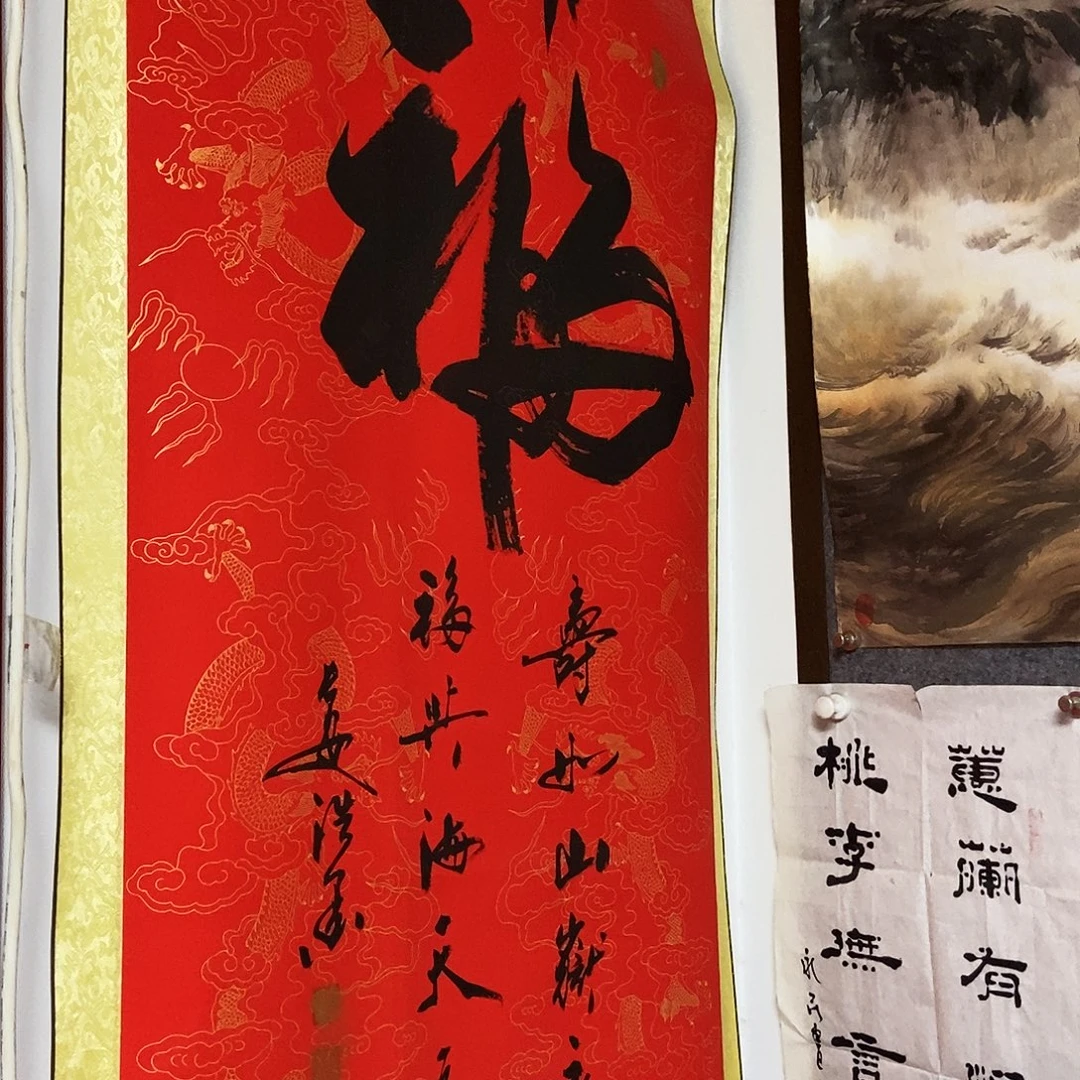 福
壽如山嶽
福共海天
姜浩
蕙蘭有
桃李無言